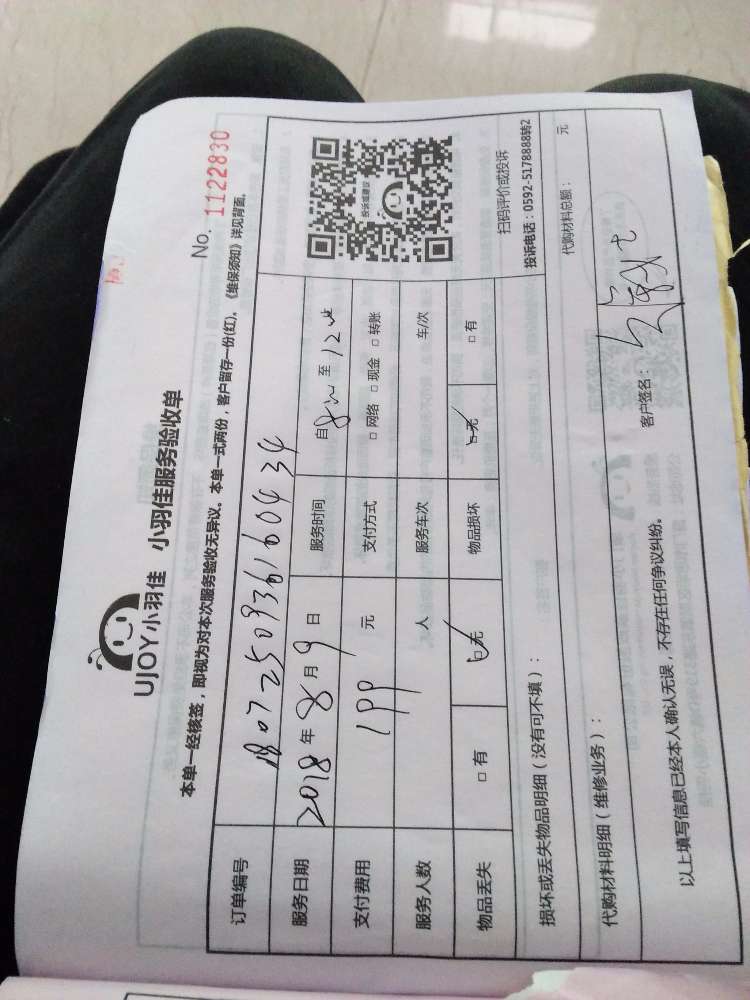 UJOY小羽佳 小羽佳服务验收单
No. 1122830
本单一经核签，即视为对本次服务验收无异议。本单一式两份，客户留存一份(红)。《维保须知》详见背面。
订单编号 180725093616043​4
服务日期 2018年8月9日 服务时间 自8:00至12:00
支付费用 199元 支付方式 □网络 □现金 □转账
服务人数 人 服务车次 车/次
物品丢失 □有 □无 物品损坏 □无 □有
投诉或建议
扫码评价或投诉
投诉电话：0592-5178888转2
损坏或丢失物品明细（没有可不填）：
代购材料明细（维修业务）： 代购材料总额： 元
以上填写信息已经本人确认无误，不存在任何争议纠纷。 客户签名：